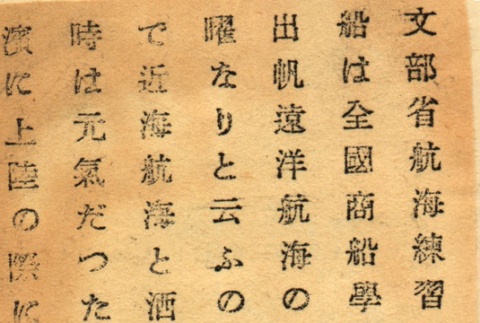 文部省航海練習
船は全國商船學
出帆遠洋航海の
曜なりと云ふの
で近海航海と洒
時は元氣だつた
濱に上陸の際に